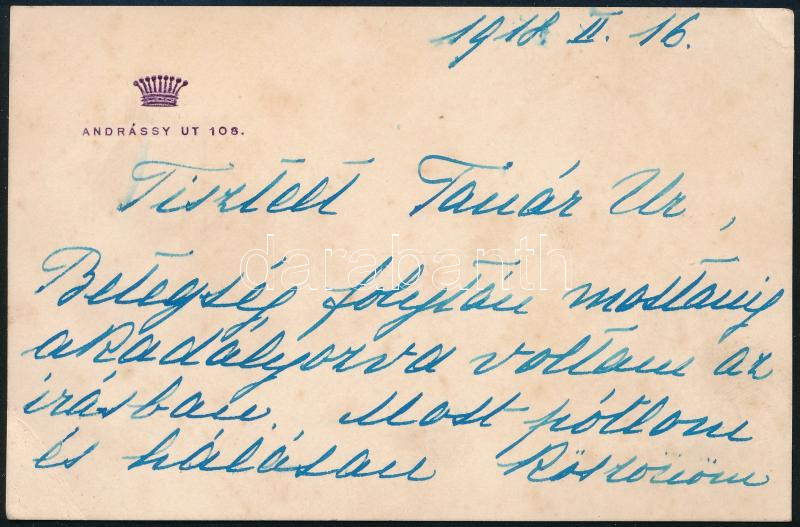 1918 II. 16.
ANDRÁSSY UT 106.
Tisztelt Tanár Ur,
darabanth
Betegség folytán mostanig
akadályozva voltam az
irásban. Most pótlom
és hálásan köszönöm